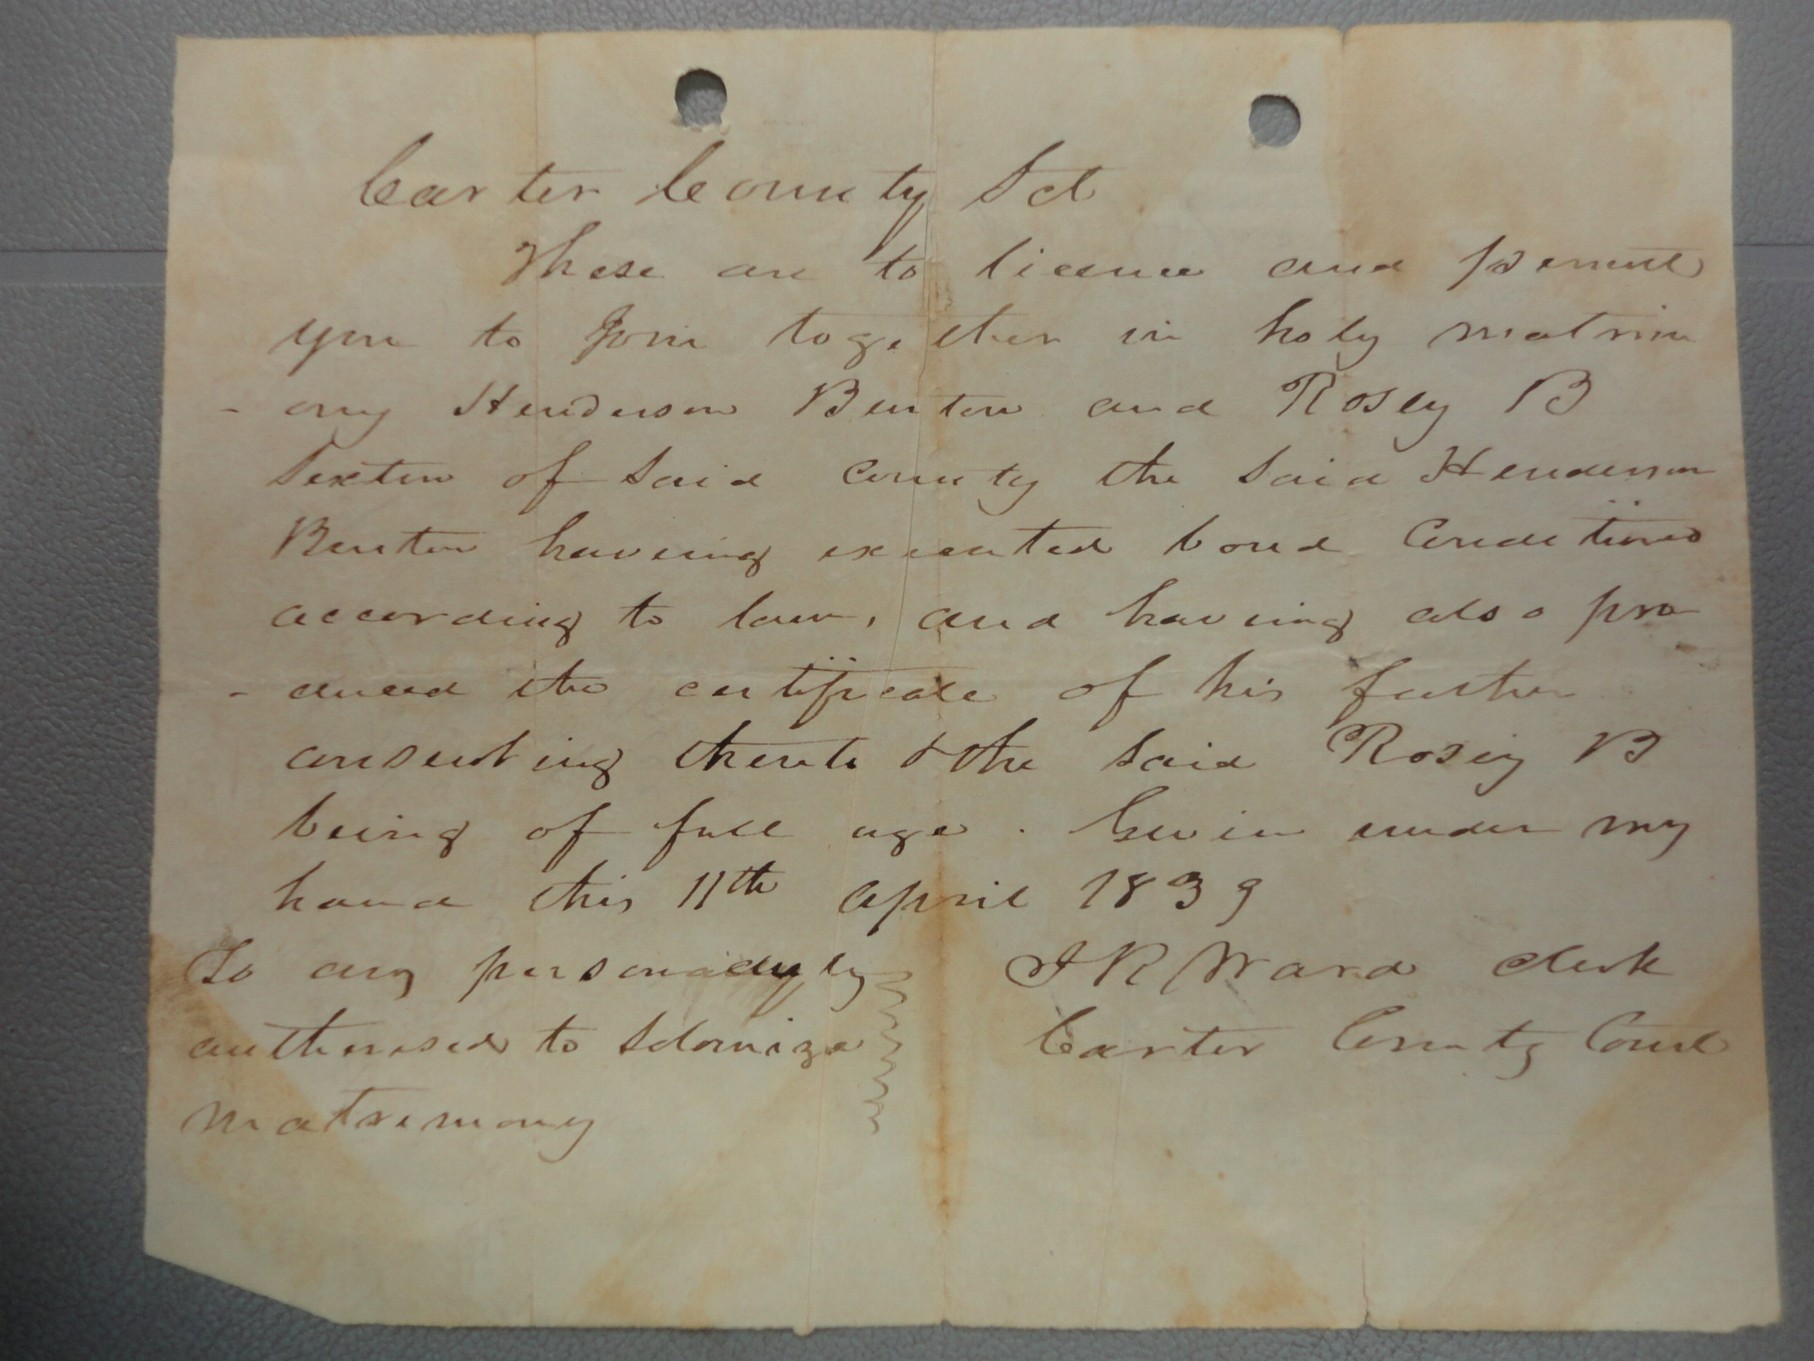 Carter County Sct
These are to licence and permit
you to Join together in holy matrim
- ony Henderson Benton and Rosey B
Sexton of said county the said Henderson
Benton haveing executed bond Conditioned
according to law, and having also pro
- duced the certificate of his father
consenting thereto & the said Rosey B
being of full age. Given under my
hand this 11th april 1839
To any person legally
authorised to solomize
matremony
J R Ward clerk
Carter County Court